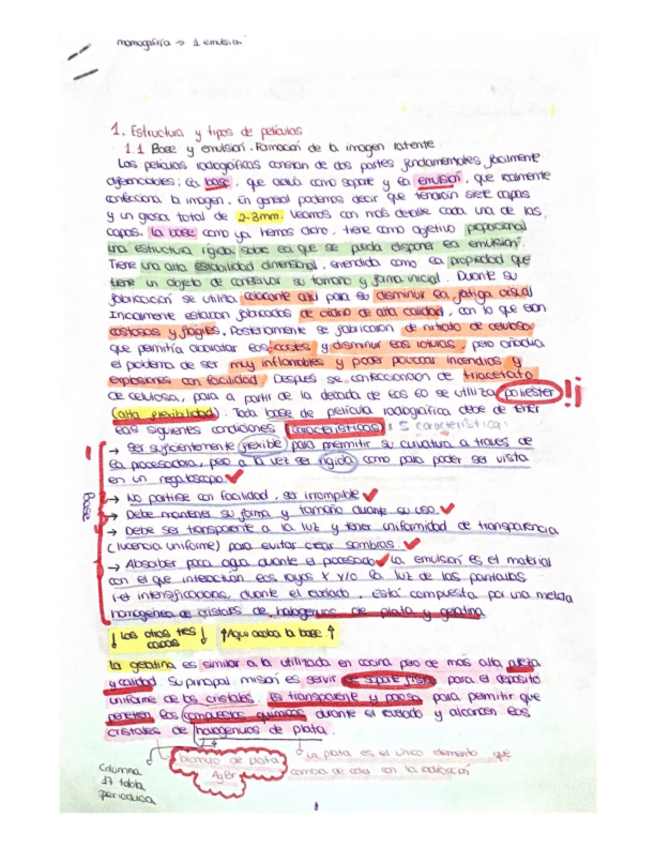 mamografía → 1 emulsión
1. Estructura y tipos de películas
1.1 Base y emulsión. Formación de la imagen latente.
Las películas radiográficas constan de dos partes fundamentales facilmente
diferenciables; la base, que actúa como soporte y la emulsión, que realmente
confecciona la imagen. En general podemos decir que tendrán siete capas
y un grosor total de 2-3mm. Veamos con más detalle cada una de las
capas. La base como ya hemos dicho, tiene como objetivo proporcionar
una estructura rígida sobre la que se pueda disponer la emulsión.
Tiene una alta estabilidad dimensional, entendida como la propiedad que
tiene un objeto de conservar su tamaño y forma inicial. Durante su
fabricación se utiliza colorante azul para su disminuir la fatiga visual
Inicalmente estaban fabricados de vidrio de alta calidad, con lo que eran
costosas y frágiles. Posteriormente se fabricaron de nitrato de celulosa
que permitía abaratar los costes y disminuir las roturas, pero añadía
el problema de ser muy inflamables y poder provocar incendios y
explosiones con facilidad. Después se confeccionaron de triacetato
de celulosa, para a partir de la decada de los 60 se utiliza poliester !¡
(alta flexibilidad). Toda base de película radiográfica debe de tener
las siguientes condiciones (características): 5 característica:
→ Ser suficientemente flexible para premitir su curvatura a traves de
la procesadora, pero a la vez ser rígida como para poder ser vista
en un negatoscopio.
→ No partirse con facilidad, ser irrompible
→ Debe mantener su forma y tamaño durante su uso.
→ Debe ser transparente a la luz y tener uniformidad de transparencia
(lucencia uniforme) para evitar crear sombras.
→ Absorber poca agua durante el procesado. La emulsión es el material
Base
con el que interactúan los rayos X y/o la luz de las pantallas
intensificadoras, durante el revelado. Está compuesta por una mezcla
homogénea de cristales de halogenuros de plata y gelatina
↓ Las otras tres capas ↓ ↑ Aquí acaba la base ↑
La gelatina es similar a la utilizada en cocina pero de más alta pureza
y calidad. Su principal misión es servir de soporte físico para el deposito
uniforme de los cristales. Es transparente y porosa para permitir que
penetren los compuestos químicos durante el revelado y alcancen los
cristales de halogenuros de plata.
Columna 17 tabla periodica
bromuro de plata
AgBr
La plata es el único elemento que
cambia de color con la radiación
1